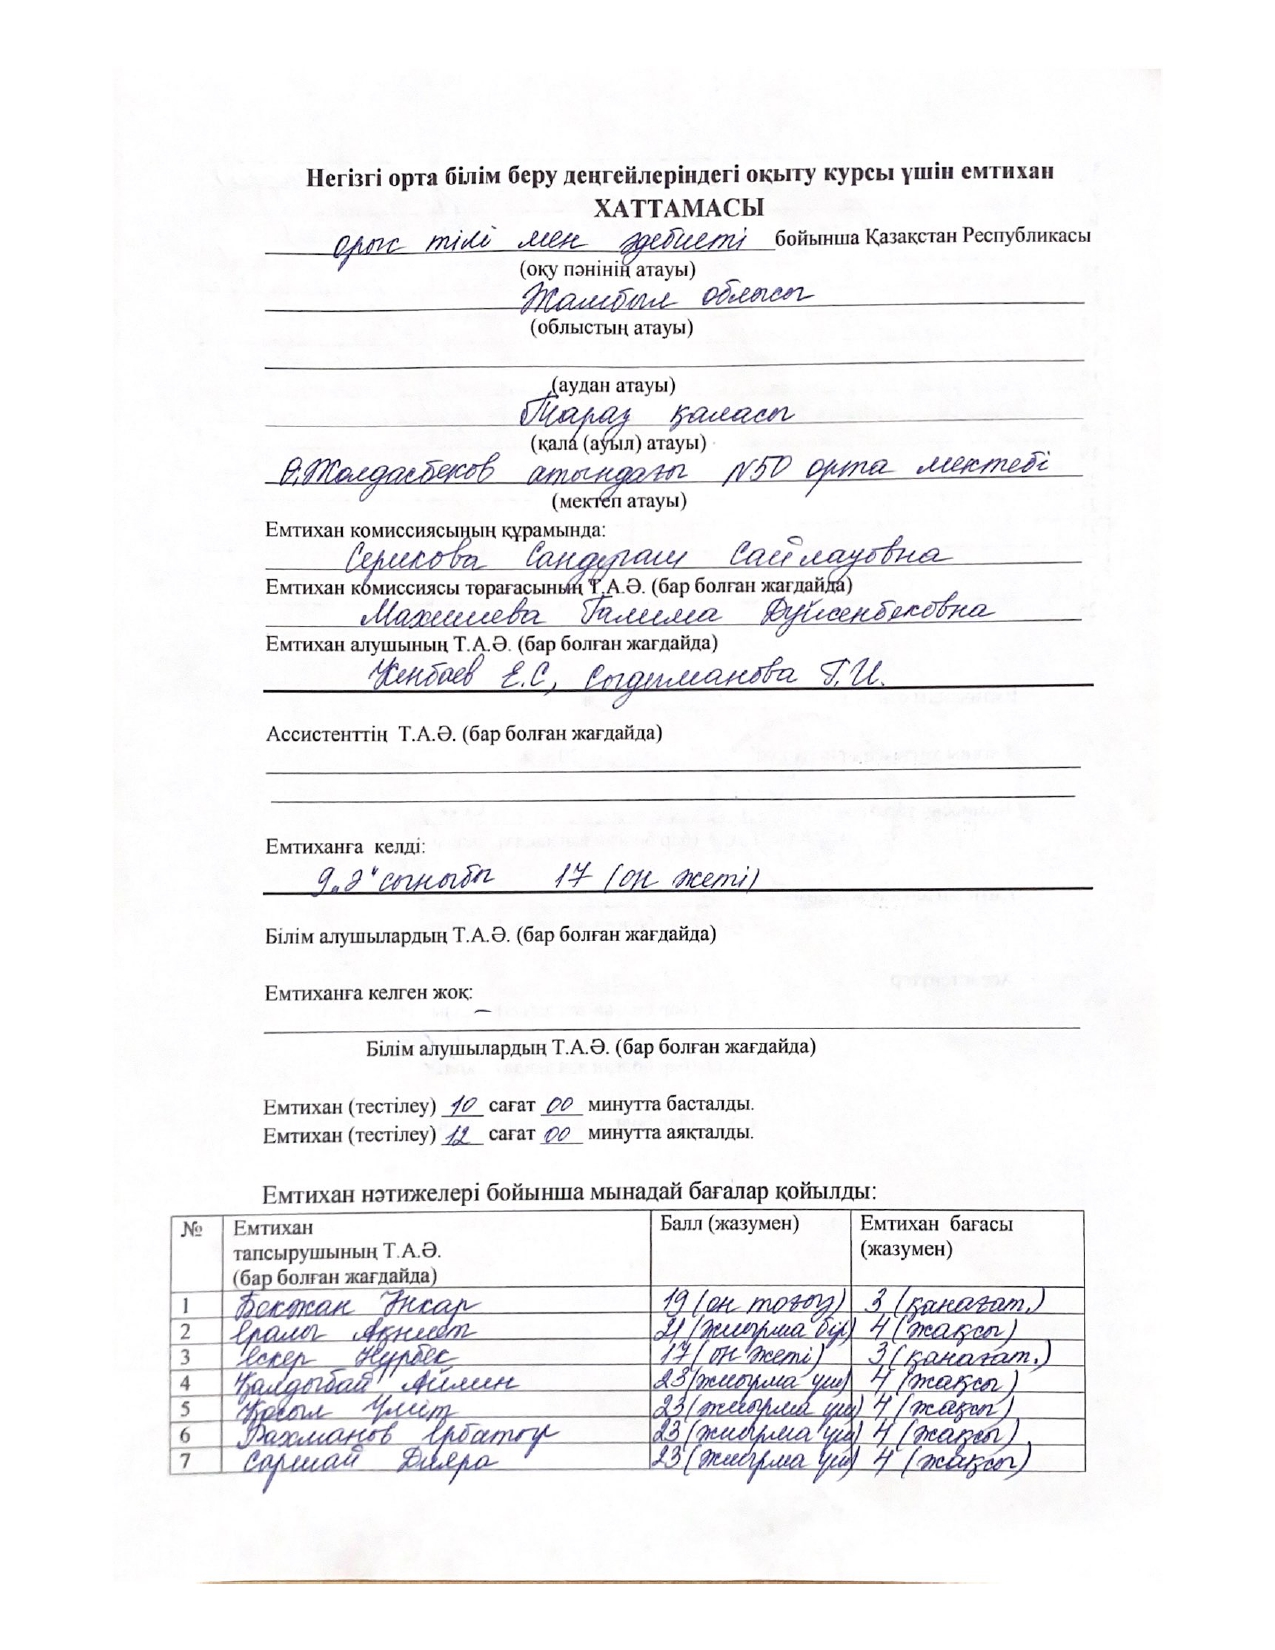 Негізгі орта білім беру деңгейлеріндегі оқыту курсы үшін емтихан
ХАТТАМАСЫ
орыс тілі мен әдебиеті бойынша Қазақстан Республикасы
(оқу пәнінің атауы)
Жамбыл облысы
(облыстың атауы)
(аудан атауы)
Тараз қаласы
(қала (ауыл) атауы)
Ө.Жолдасбеков атындағы №50 орта мектебі
(мектеп атауы)
Емтихан комиссиясының құрамында:
Серикова Сандуғаш Сайлауовна
Емтихан комиссиясы төрағасының Т.А.Ә. (бар болған жағдайда)
Махишева Галима Дүйсенбековна
Емтихан алушының Т.А.Ә. (бар болған жағдайда)
Укибаев Е.С, Сыдыманова Г.И.
Ассистенттің Т.А.Ә. (бар болған жағдайда)
Емтиханға келді:
9 "Ә" сыныбы 17 (он жеті)
Білім алушылардың Т.А.Ә. (бар болған жағдайда)
Емтиханға келген жоқ:
–
Білім алушылардың Т.А.Ә. (бар болған жағдайда)
Емтихан (тестілеу) 10 сағат 00 минутта басталды.
Емтихан (тестілеу) 12 сағат 00 минутта аяқталды.
Емтихан нәтижелері бойынша мынадай бағалар қойылды:
№ Емтихан тапсырушының Т.А.Ә. (бар болған жағдайда) Балл (жазумен) Емтихан бағасы (жазумен)
1 Бекжан Іңкар 19 (он тоғыз) 3 (қанағат.)
2 Ералы Ақниет 21 (жиырма бір) 4 (жақсы)
3 Ескер Нұрбек 17 (он жеті) 3 (қанағат.)
4 Қалдыбай Айлин 23 (жиырма үш) 4 (жақсы)
5 Қосыл Үміт 23 (жиырма үш) 4 (жақсы)
6 Рахманов Ербатыр 23 (жиырма үш) 4 (жақсы)
7 Сармай Дияра 23 (жиырма үш) 4 (жақсы)